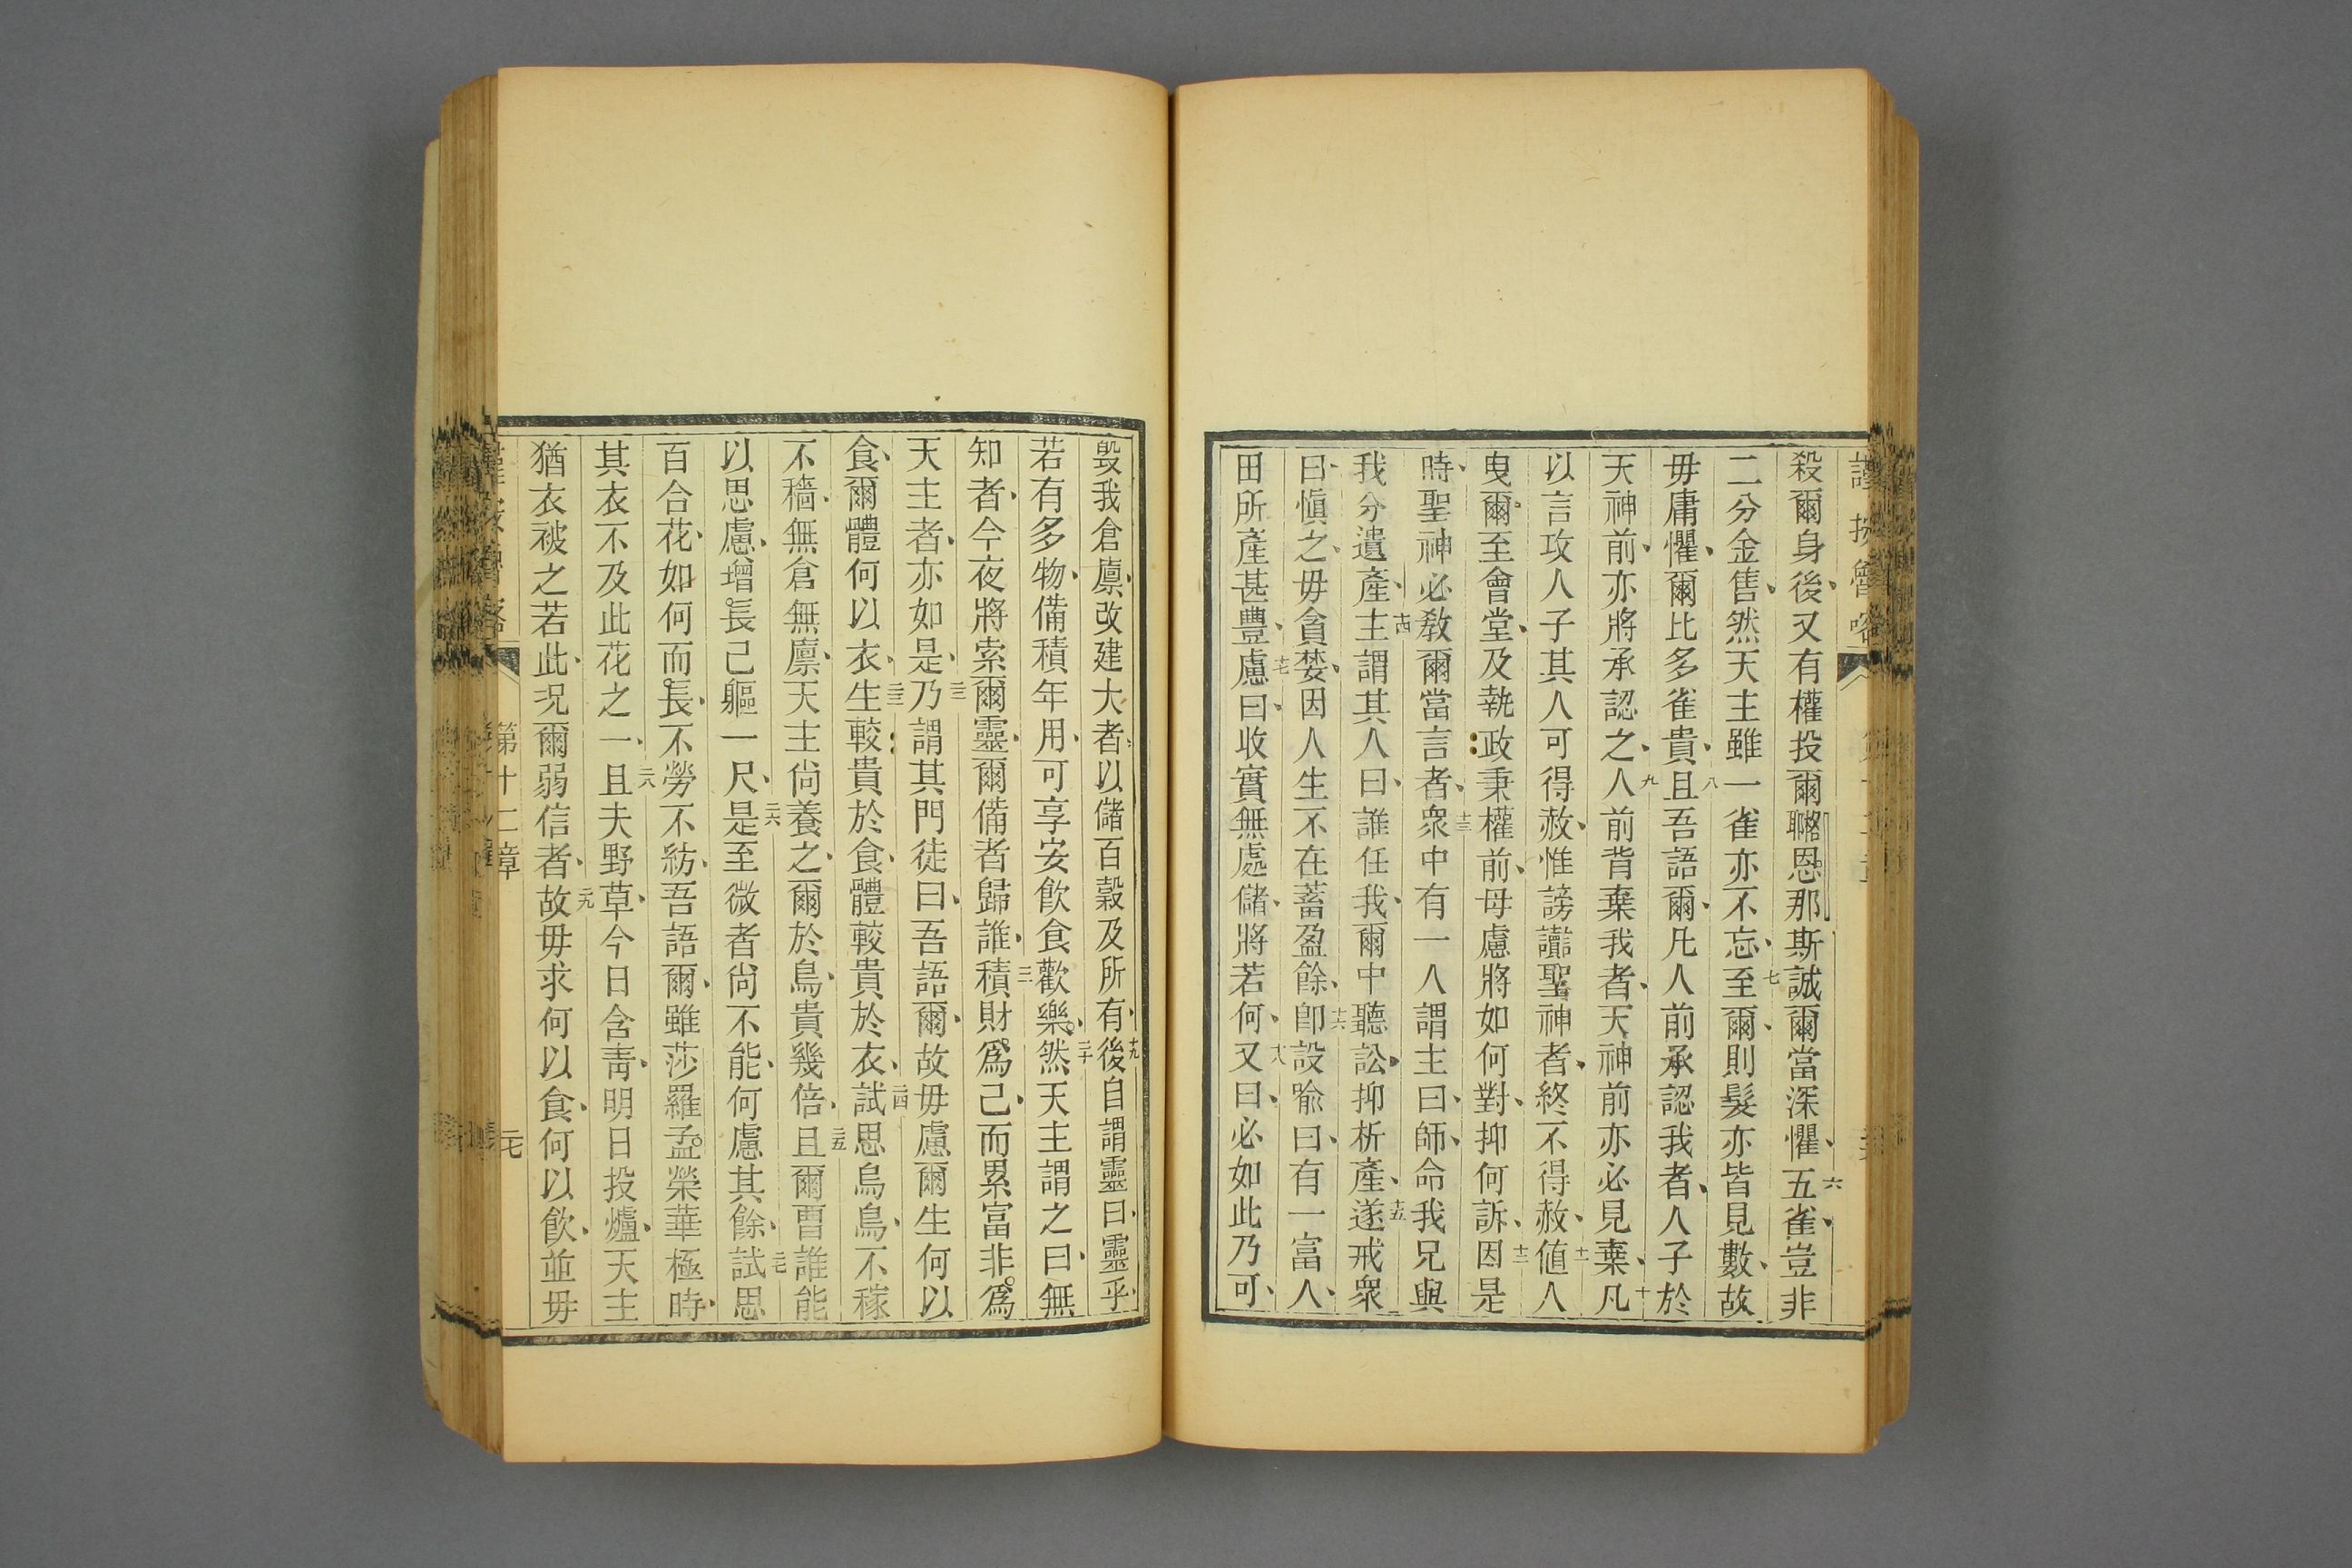 殺爾身後、又有權投爾𭊌恩那斯誠爾當深懼、六五雀、豈非
二分金售、然天主雖一雀亦不忘、七至爾、則髮亦皆見數、故
毋庸懼、爾比多雀貴、八且吾語爾、凡人前承認我者、人子於
天神前、亦將承認之、九人前背棄我者、天神前亦必見棄、十凡
以言攻人子其人可得赦、惟謗讟聖神者、終不得赦、十一値人
曳爾至會堂、及執政秉權前、毋慮將如何對、抑何訴、十二因是
時、聖神必敎爾當言者、十三衆中有一人謂主曰、師、命我兄與
我分遺產、十四主謂其人曰、誰任我、爾中聽訟、抑析產、十五遂戒衆
曰、愼之、毋貪婪、因人生不在蓄盈餘、十六卽設喩曰、有一富人、
田所產甚豐、十七慮曰、收實無處儲、將若何、十八又曰、必如此乃可、
毀我倉廪、改建大者、以儲百穀及所有、十九後自謂靈曰、靈乎、
若有多物、備積年用、可享安飮食歡樂、二十然天主謂之曰、無
知者、今夜將索爾靈、爾備者歸誰、二一積財爲己、而累富非爲
天主者、亦如是、二二乃謂其門徒曰、吾語爾、故毋慮爾生何以
食、爾體何以衣、二三生較貴於食、體較貴於衣、二四試思烏鳥、不稼
不穡、無倉無廪、天主尙養之、爾於鳥、貴幾倍、二五且爾曹誰能
以思慮、增長己軀一尺、二六是至微者尙不能、何慮其餘、二七試思
百合花、如何而長、不勞不紡、吾語爾、雖莎羅孟榮華極時、
其衣不及此花之一、二八且夫野草、今日含靑、明日投爐、天主
猶衣被之若此、况爾弱信者、二九故毋求何以食、何以飮、並毋
第十二章
二七